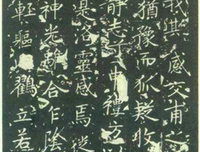 我欺感交甫之
猶豫而狐疑收
静志兮申禮防
是洛靈感焉徙
神光離合乍陰
輕軀以鶴立若